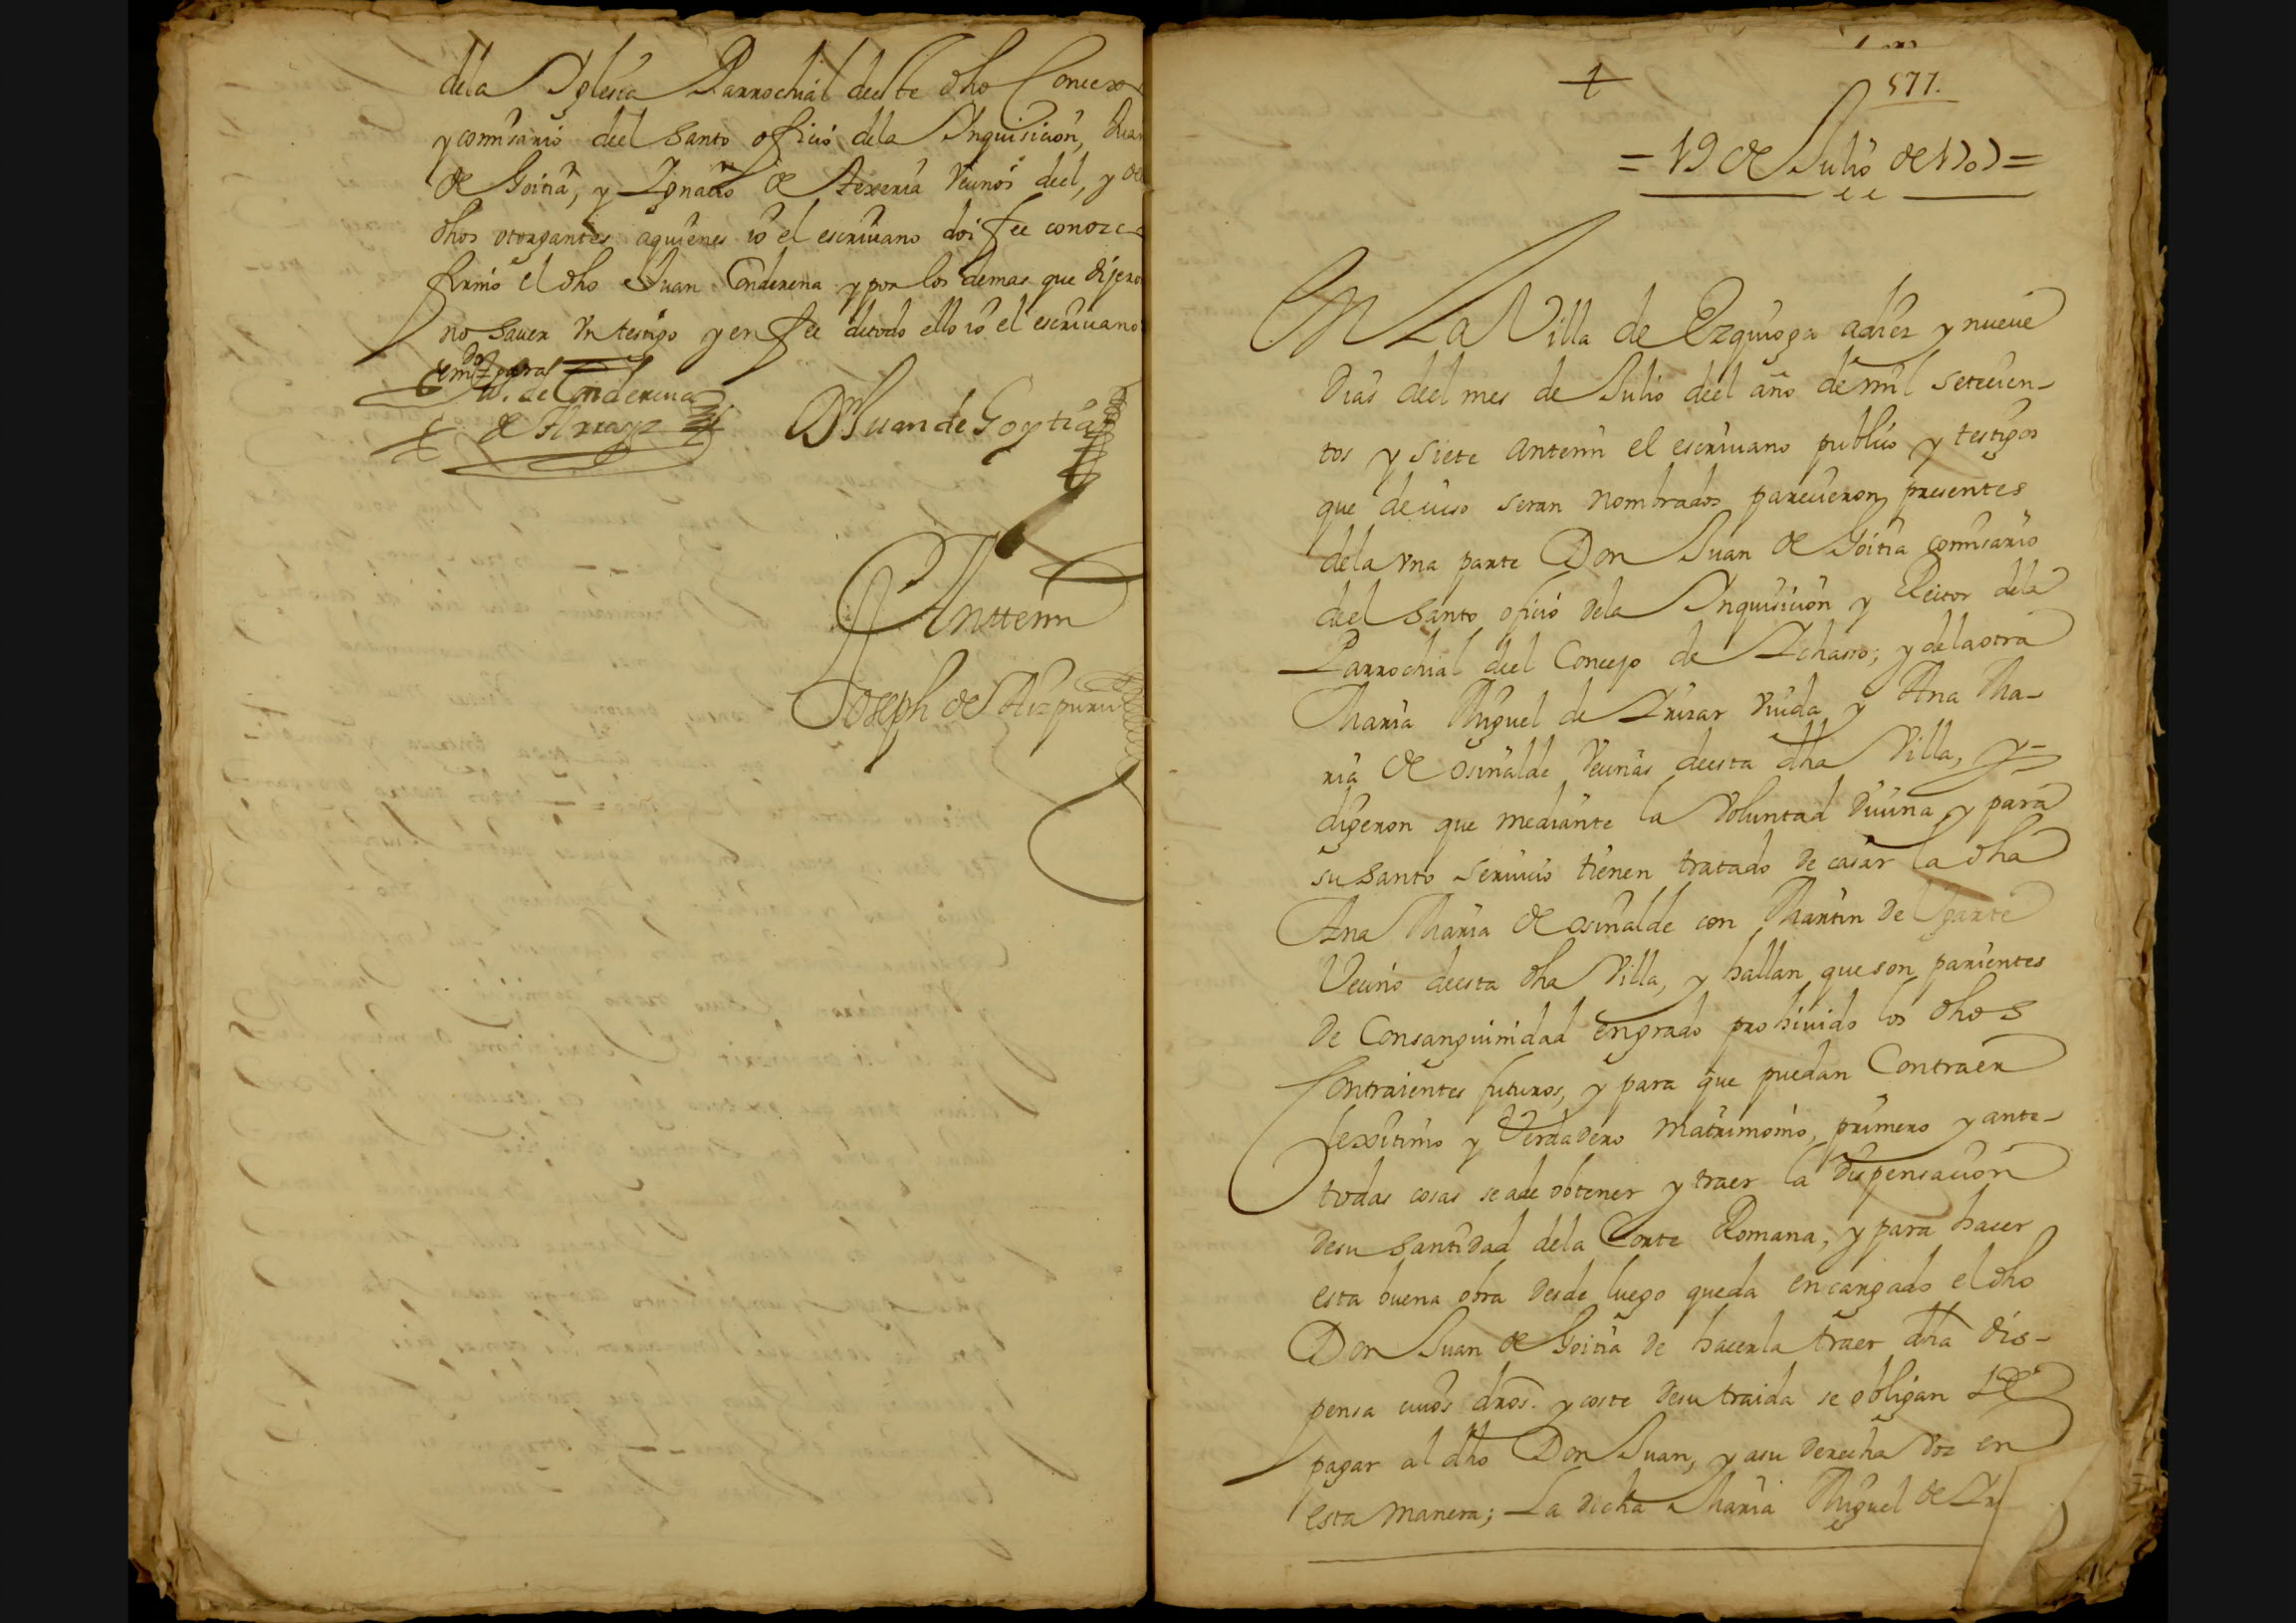 dela Yglesia Parrochial deeste dho Concexo
y comisario deel Santo oficio dela Inquisicion, Juan
de Goitia, y Ignacio de Aexeria Vecinos deel, y de
dhos otorgantes aquienes io el escriuano doi fee conozco
firmo el dho Juan Conderena y por los demas que dijeron
no sauer Vn testigo y en fee de todo ello io el escriuano
emdo para
de Conderena
de Arraya
Dn Juan de Goytia
Anttemi
Joseph de Aizpuru
577.
= 19 de Julio de 1707 =
En La Villa de Ezquioga adiez y nueue
Dias deel mes de Julio deel año de mil setecien-
tos y siete antemi el escriuano publico y testigos
que deiuso seran nombrados parecieron presentes
dela vna parte Don Juan de Goitia comisario
deel Santo oficio dela Inquisicion y Retor dela
Parrochial deel Concejo de Ichasso; y dela otra
Maria Miguel de Irizar viuda y Ana Ma-
ria de osinalde Vecinas deesta dha Villa, y
digeron que mediante la Voluntad Diuina y para
su santo seruicio tienen tratado de casar la dha
Ana Maria de osinalde con Martin de Vgarte
Vecino deesta dha Villa, y hallan que son parientes
de Consanguinidad engrado prohiuido los dhos
Contraientes futuros, y para que puedan Contraer
lexitimo y Verdadero Matrimonio, primero y ante
todas cosas se ade obtener y traer la Dispensacion
desu santidad dela Corte Romana, y para hacer
esta buena obra desde luego queda encargado el dho
Don Juan de Goitia de hacerla traer dha dis-
pensa cuios dros. y coste desu traida se obligan de
pagar al dho Don Juan, y asu derecha voz en
esta manera; La dicha Maria Miguel de Iri